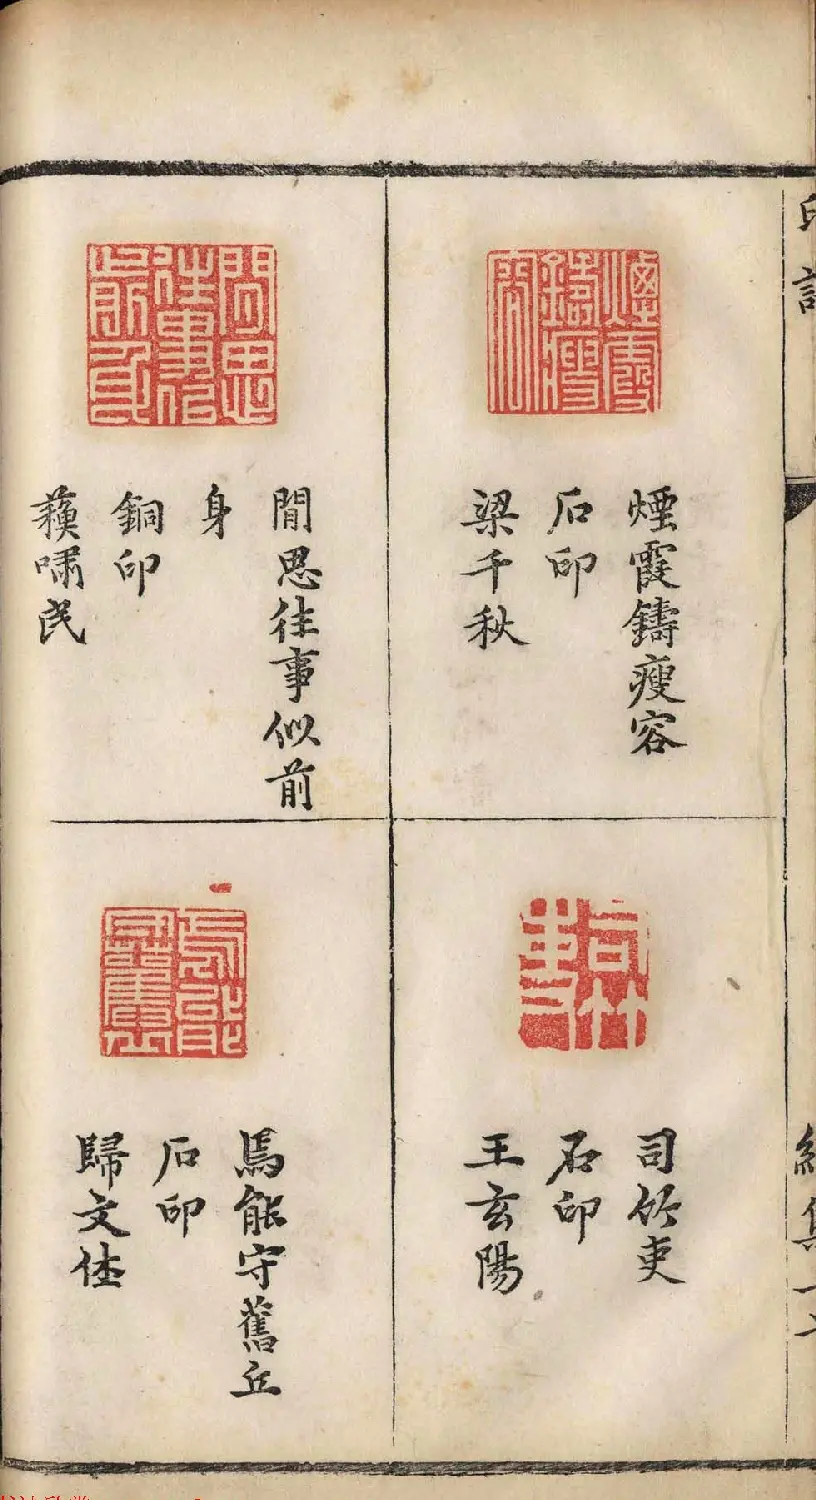 煙霞鑄瘦容
石印
梁千秋
閒思往事似前
身
銅印
蘓嘯民
司竹吏
石印
王玄陽
焉能守舊丘
石印
歸文休